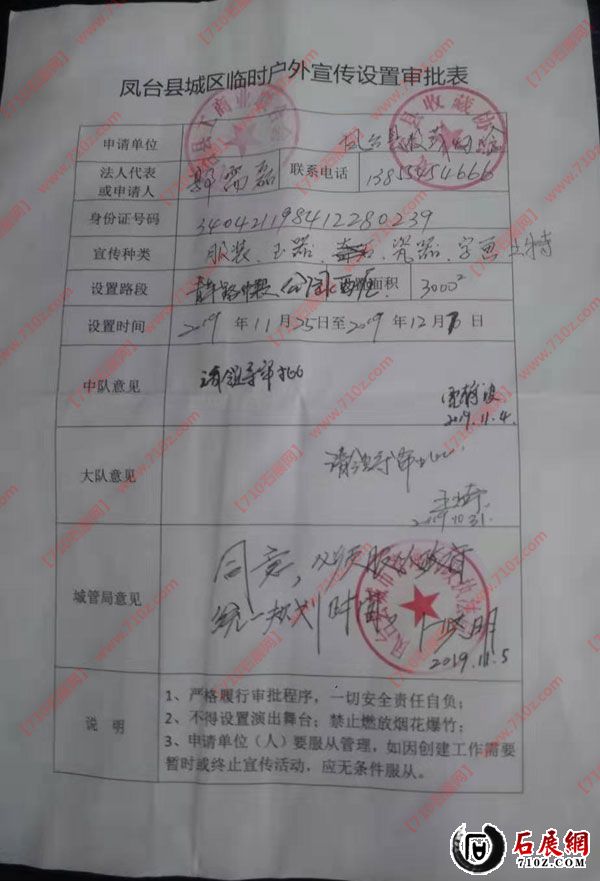 凤台县城区临时户外宣传设置审批表
申请单位
凤台县收藏协会
法人代表
或申请人
联系电话
13855454666
身份证号码
340421198412280239
宣传种类
服装、玉器、奇石、瓷器、字画土特
设置路段
公园西
面积
3000²
设置时间
2019 年 11 月 25 日至 2019 年 12 月 日
中队意见
请领导审批
2019.11.4.
大队意见
请领导审批
2019.10.31.
城管局意见
同意,必须服从政府
统一规划时间。
2019.11.5
说 明
1、严格履行审批程序,一切安全责任自负;
2、不得设置演出舞台;禁止燃放烟花爆竹;
3、申请单位(人)要服从管理,如因创建工作需要
暂时或终止宣传活动,应无条件服从。
【710石展网】www.710z.com
石展網
710z.COM